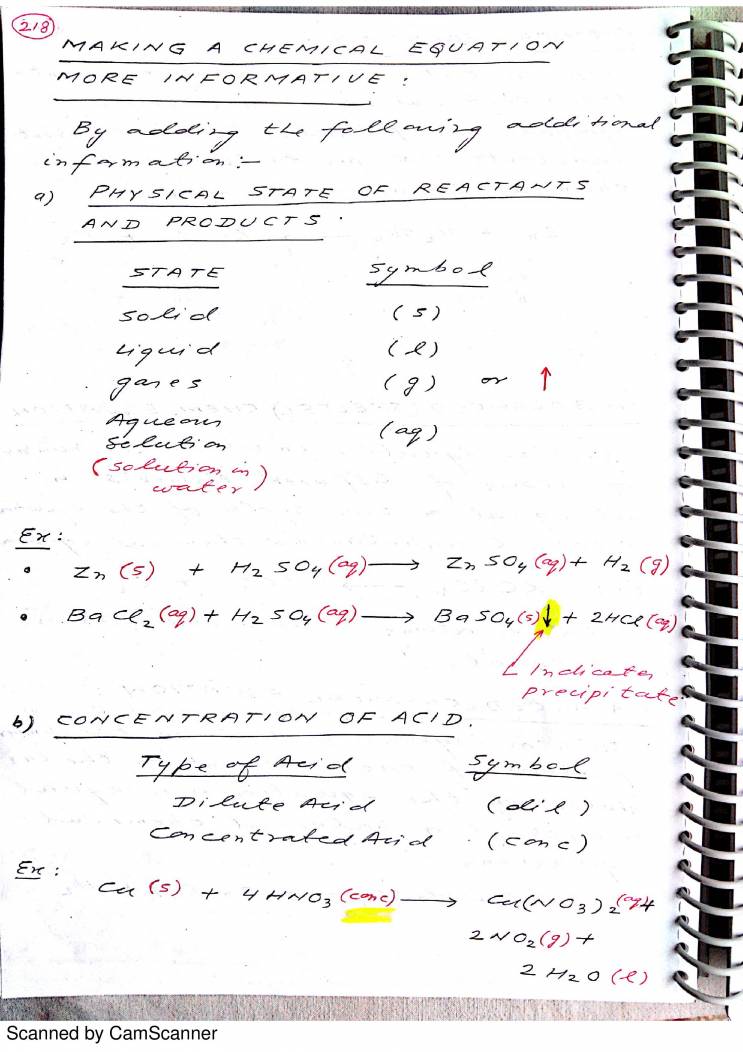 218
MAKING A CHEMICAL EQUATION
MORE INFORMATIVE :
By adding the following additional
information :-
a) PHYSICAL STATE OF REACTANTS
AND PRODUCTS.
STATE Symbol
Solid (s)
Liquid (l)
gases (g) or ↑
Aqueous
Solution (aq)
(solution in
water)
Ex :
• Zn (s) + H2 SO4 (aq) ⟶ Zn SO4 (aq) + H2 (g)
• Ba Cl2 (aq) + H2 SO4 (aq) ⟶ Ba SO4 (s) ↓ + 2HCl (aq)
Indicates
precipitate
b) CONCENTRATION OF ACID.
Type of Acid Symbol
Dilute Acid (dil)
Concentrated Acid (conc)
Ex :
Cu (s) + 4 HNO3 (conc) ⟶ Cu(NO3)2 (aq) +
2 NO2 (g) +
2 H2O (l)
Scanned by CamScanner